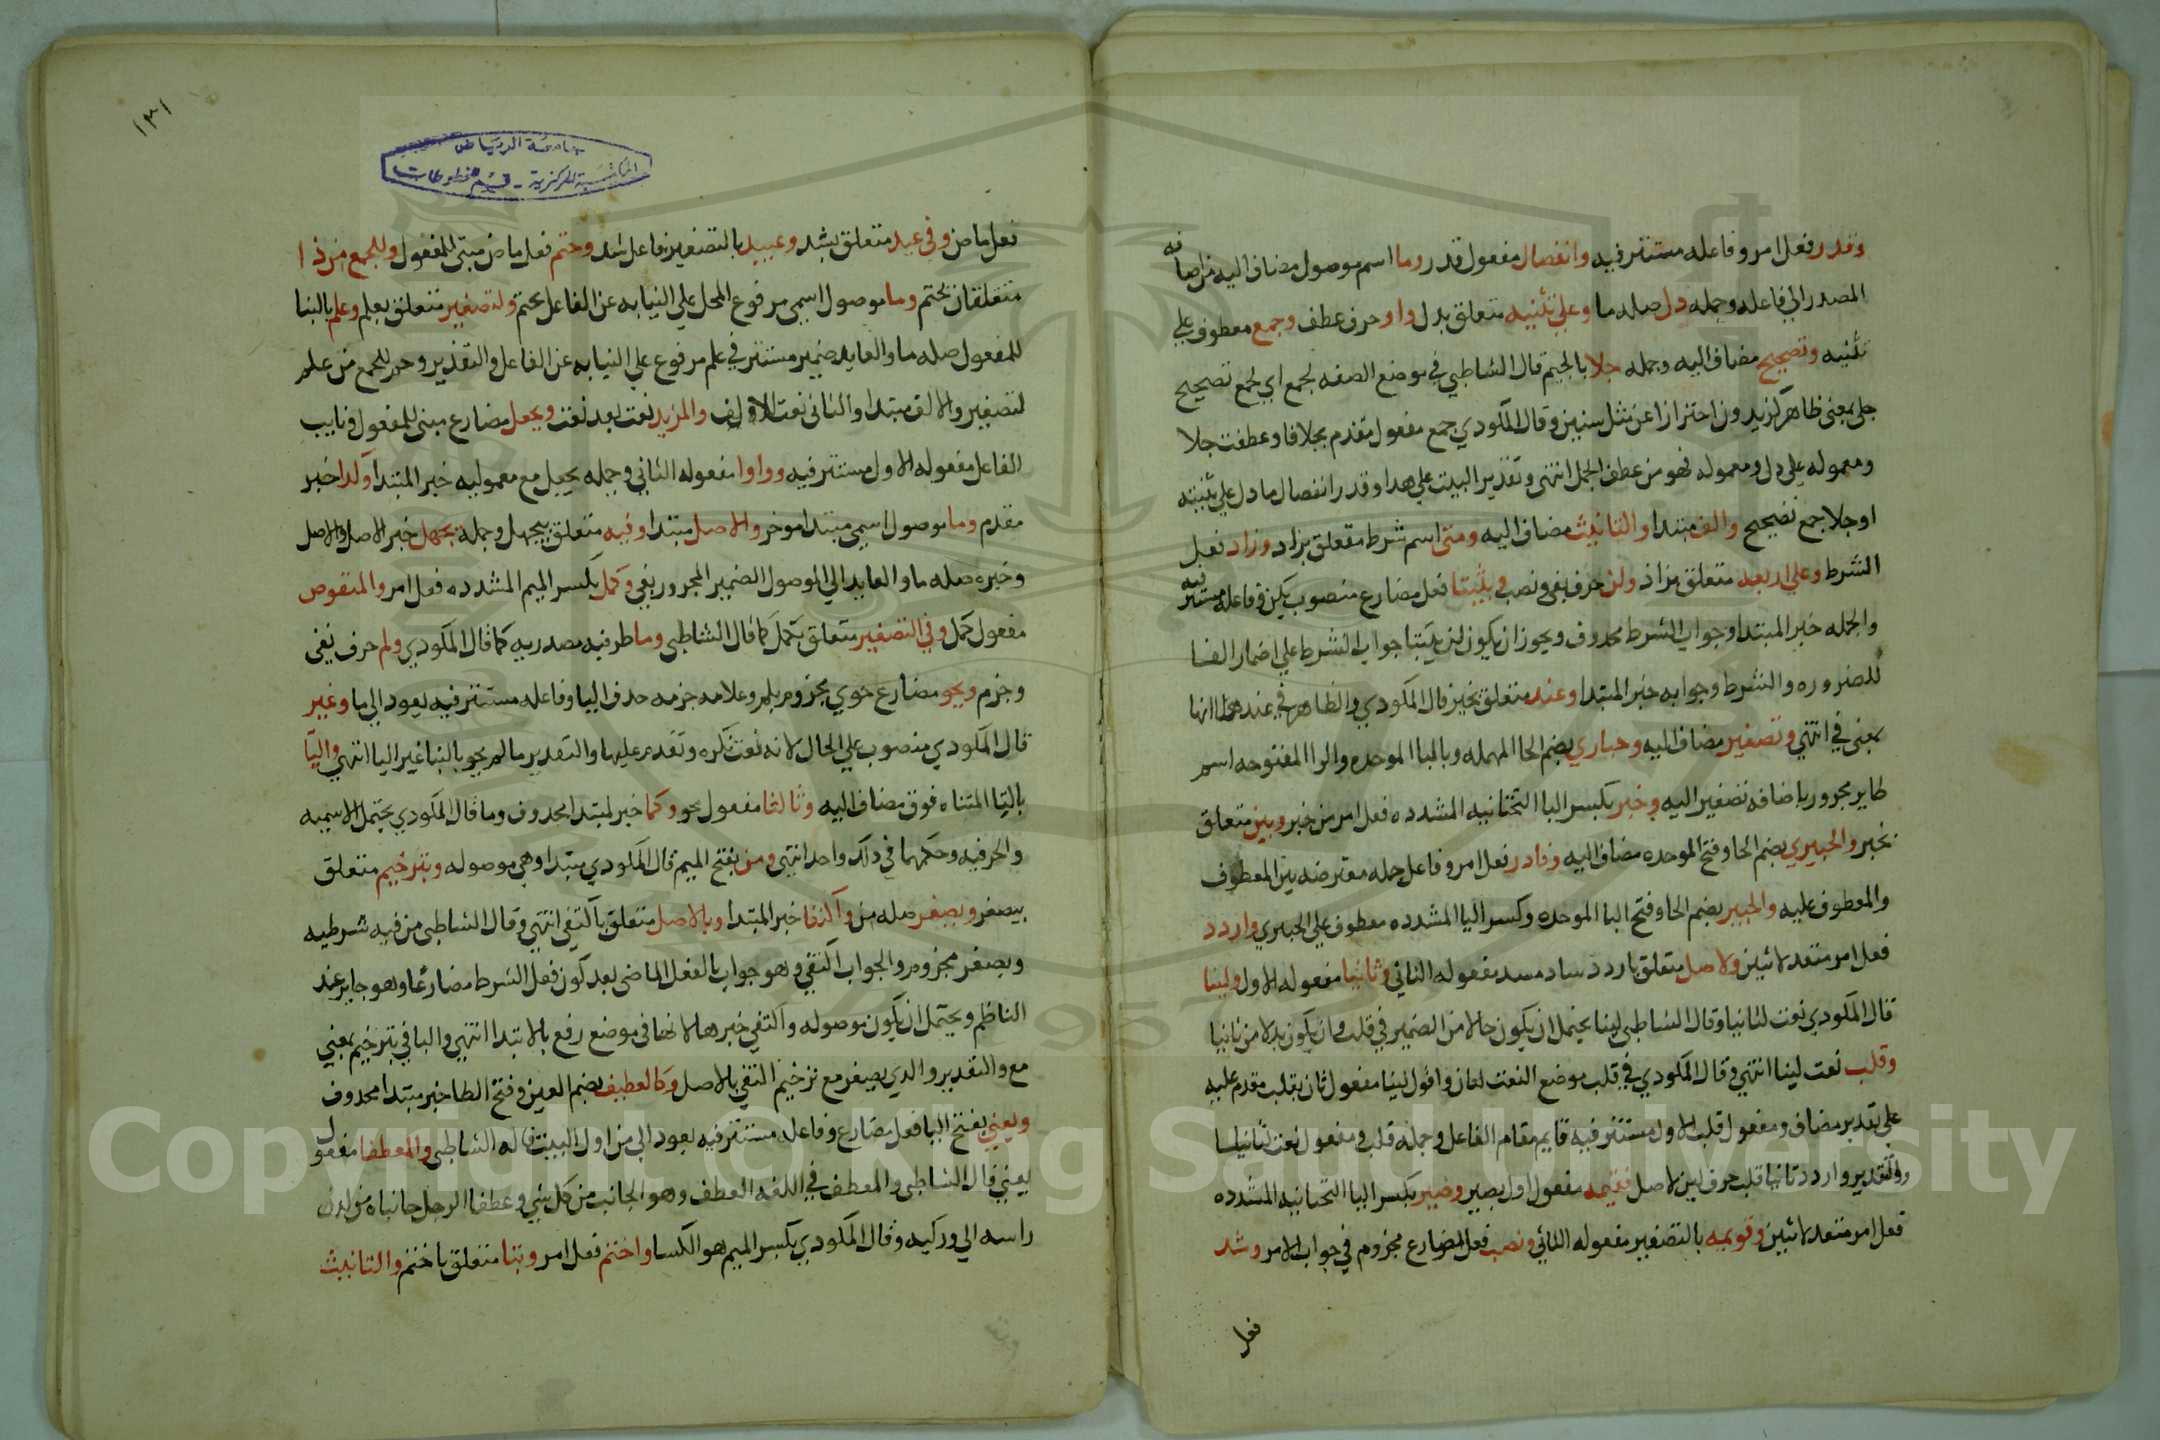 وقدر فعل امر وفاعله مستتر فيه وانفصال مفعول قدر وما اسم موصول مضاف اليه من اضافه
المصدر الي فاعله وجمله دل صله ما وعلي تثنيه متعلق بدل واو حرف عطف وجمع معطوف علي
تثنيه وتصحيح مضاف اليه وجمله جلا بالجيم قال الشاطبي في موضع الصفه لجمع اي لجمع تصحيح
جلي بمعني ظاهر كزيدون احترازا عن مثل سنين وقال المكودي جمع مفعول مقدم بجلا فا وعطفت جلا
ومعموله علي دل ومعموله فهو من عطف الجمل انتهي وتقدير البيت علي هذا وقدر انفصال ما دل علي تثنيته
او جلا جمع تصحيح والف مبتدا والتانيث مضاف اليه ومتي اسم شرط متعلق بزاد وزاد فعل
الشرط وعلي اربعه متعلق بزاد ولن حرف نفي ونصب ويثبتا فعل مضارع منصوب بلن وفاعله مستتر فيه
والجمله خبر المبتدا وجواب الشرط محذوف ويجوز ان يكون لن يثبتا جواب الشرط علي اضمار الفا
للضروره والشرط وجوابه خبر المبتدا وعند متعلق بخير قال المكودي والظاهر في عند هنا انها
بمعني في انتهي وتصغير مضاف اليه وحباري بضم الحا المهمله وبالبا الموحده والرا المفتوحه اسم
طاير مجرور باضافه تصغير اليه وخير بكسر اليا التحتانيه المشدده فعل امر من خير وبين متعلق
بخير والحبيري بضم الحا وفتح الموحده مضاف اليه وفادر فعل امر وفاعل جمله معترضه بين المعطوف
والمعطوف عليه والحبير بضم الحا وفتح البا الموحده وكسر اليا المشدده معطوف علي الحبيري واردد
فعل امر متعد لاثنين ولاصل متعلق باردد ساد مسد مفعوله الثاني وثانيا مفعوله الاول ولينا
قال المكودي نعت لثانيا وقال الشاطبي لينا يحتمل ان يكون حالا من الضمير في قلب وان يكون بدلا من ثانيا
وقلب نعت لينا انتهي وقال المكودي في قلب موضع النعت لثان واقول لينا مفعول ثان بقلب مقدم عليه
علي تقدير مضاف ومفعول قلب الاول مستتر فيه قايم مقام الفاعل وجمله قلب ومفعول نعت لثانيا
والتقدير واردد ثانيا قلب حرف لين لاصل فقيمه مفعول اول بصير وصير بكسر اليا التحتانيه المشدده
فعل امر متعد لاثنين وقويمه بالتصغير مفعوله الثاني ونصب فعل المضارع مجزوم في جواب الامر وشد
فعل
١٣١
جامعة الرياض
المكتبة المركزية - قسم المخطوطات
فعل ماض وفي عيد متعلق بشد وعييد بالتصغير فاعل شد وحتم فعل ماض مبني للمفعول وللجمع من ذا
متعلقان بحتم وما موصول اسمي مرفوع المحل علي النيابه عن الفاعل بحتم ولتصغير متعلق بعلم وعلم بالبنا
للمفعول صله ما والعايد ضمير مستتر في علم مرفوع علي النيابه عن الفاعل والتقدير وحتم للجمع من علم
لتصغير والالف مبتدا والثاني نعت الاولف والمزيد نعت بعد نعت ويجعل مضارع مبني للمفعول ونايب
الفاعل مفعوله الاول مستتر فيه وواوا مفعوله الثاني وجمله يجعل مع معموليه خبر المبتدا وكذا خبر
مقدم وما موصول اسمي مبتدا موخر والاصل مبتدا وفيه متعلق بيجهل وجمله يجهل خبر الاصل والاصل
وخبره صله ما والعايد الي الموصول الضمير المجرور بفي وكمل بكسر الميم المشدده فعل امر والمنقوص
مفعول كمل وفي التصغير متعلق بكمل كما قال الشاطبي وما ظرفيه مصدريه كما قال المكودي ولم حرف نفي
وجزم ويحو مضارع حوي مجزوم بلم وعلامه جزمه حذف اليا وفاعله مستتر فيه يعود الي ما وغير
قال المكودي منصوب علي الحال لانه نعت نكره وتقدم عليها والتقدير ما لم يحو بالنا غير اليا انتهي والتا
بالتا المثناه فوق مضاف اليه وثالثا مفعول يحو وكما خبر لمبتدا محذوف وما قال المكودي يحتمل الاسميه
والحرفيه وحكمهما في ذلك واحد انتهي ومن بفتح الميم قال المكودي مبتدا وهي موصوله وبترخيم متعلق
بيصغر ويصغر صله من واكتفا خبر المبتدا وبالاصل متعلق باكتفي انتهي وقال الشاطبي من فيه شرطيه
ويصغر مجزوم والجواب اكتفي وهو جواب بالفعل الماضي بعد كون فعل الشرط مضارعا وهو جايز عند
الناظم ويحتمل ان يكون موصوله واكتفي خبرها لانها في موضع رفع بالابتدا انتهي والبا في بترخيم بمعني
مع والتقدير والذي يصغر مع ترخيم التقي بالاصل وكالعطيف بضم العين وفتح الطا خبر مبتدا محذوف
ويعني بفتح اليا فعل مضارع وفاعله مستتر فيه يعود الي من اول البيت قاله الشاطبي والمعطفا مفعول
يعني قال الشاطبي والمعطف في اللغه العطف وهو الجانب من كل شي وعطفا الرجل جانباه من لدن
راسه الي وركيه وقال المكودي بكسر الميم هو الكسا واختم فعل امر وبتا متعلق باختم والتانيث
Copyright © King Saud University
1957